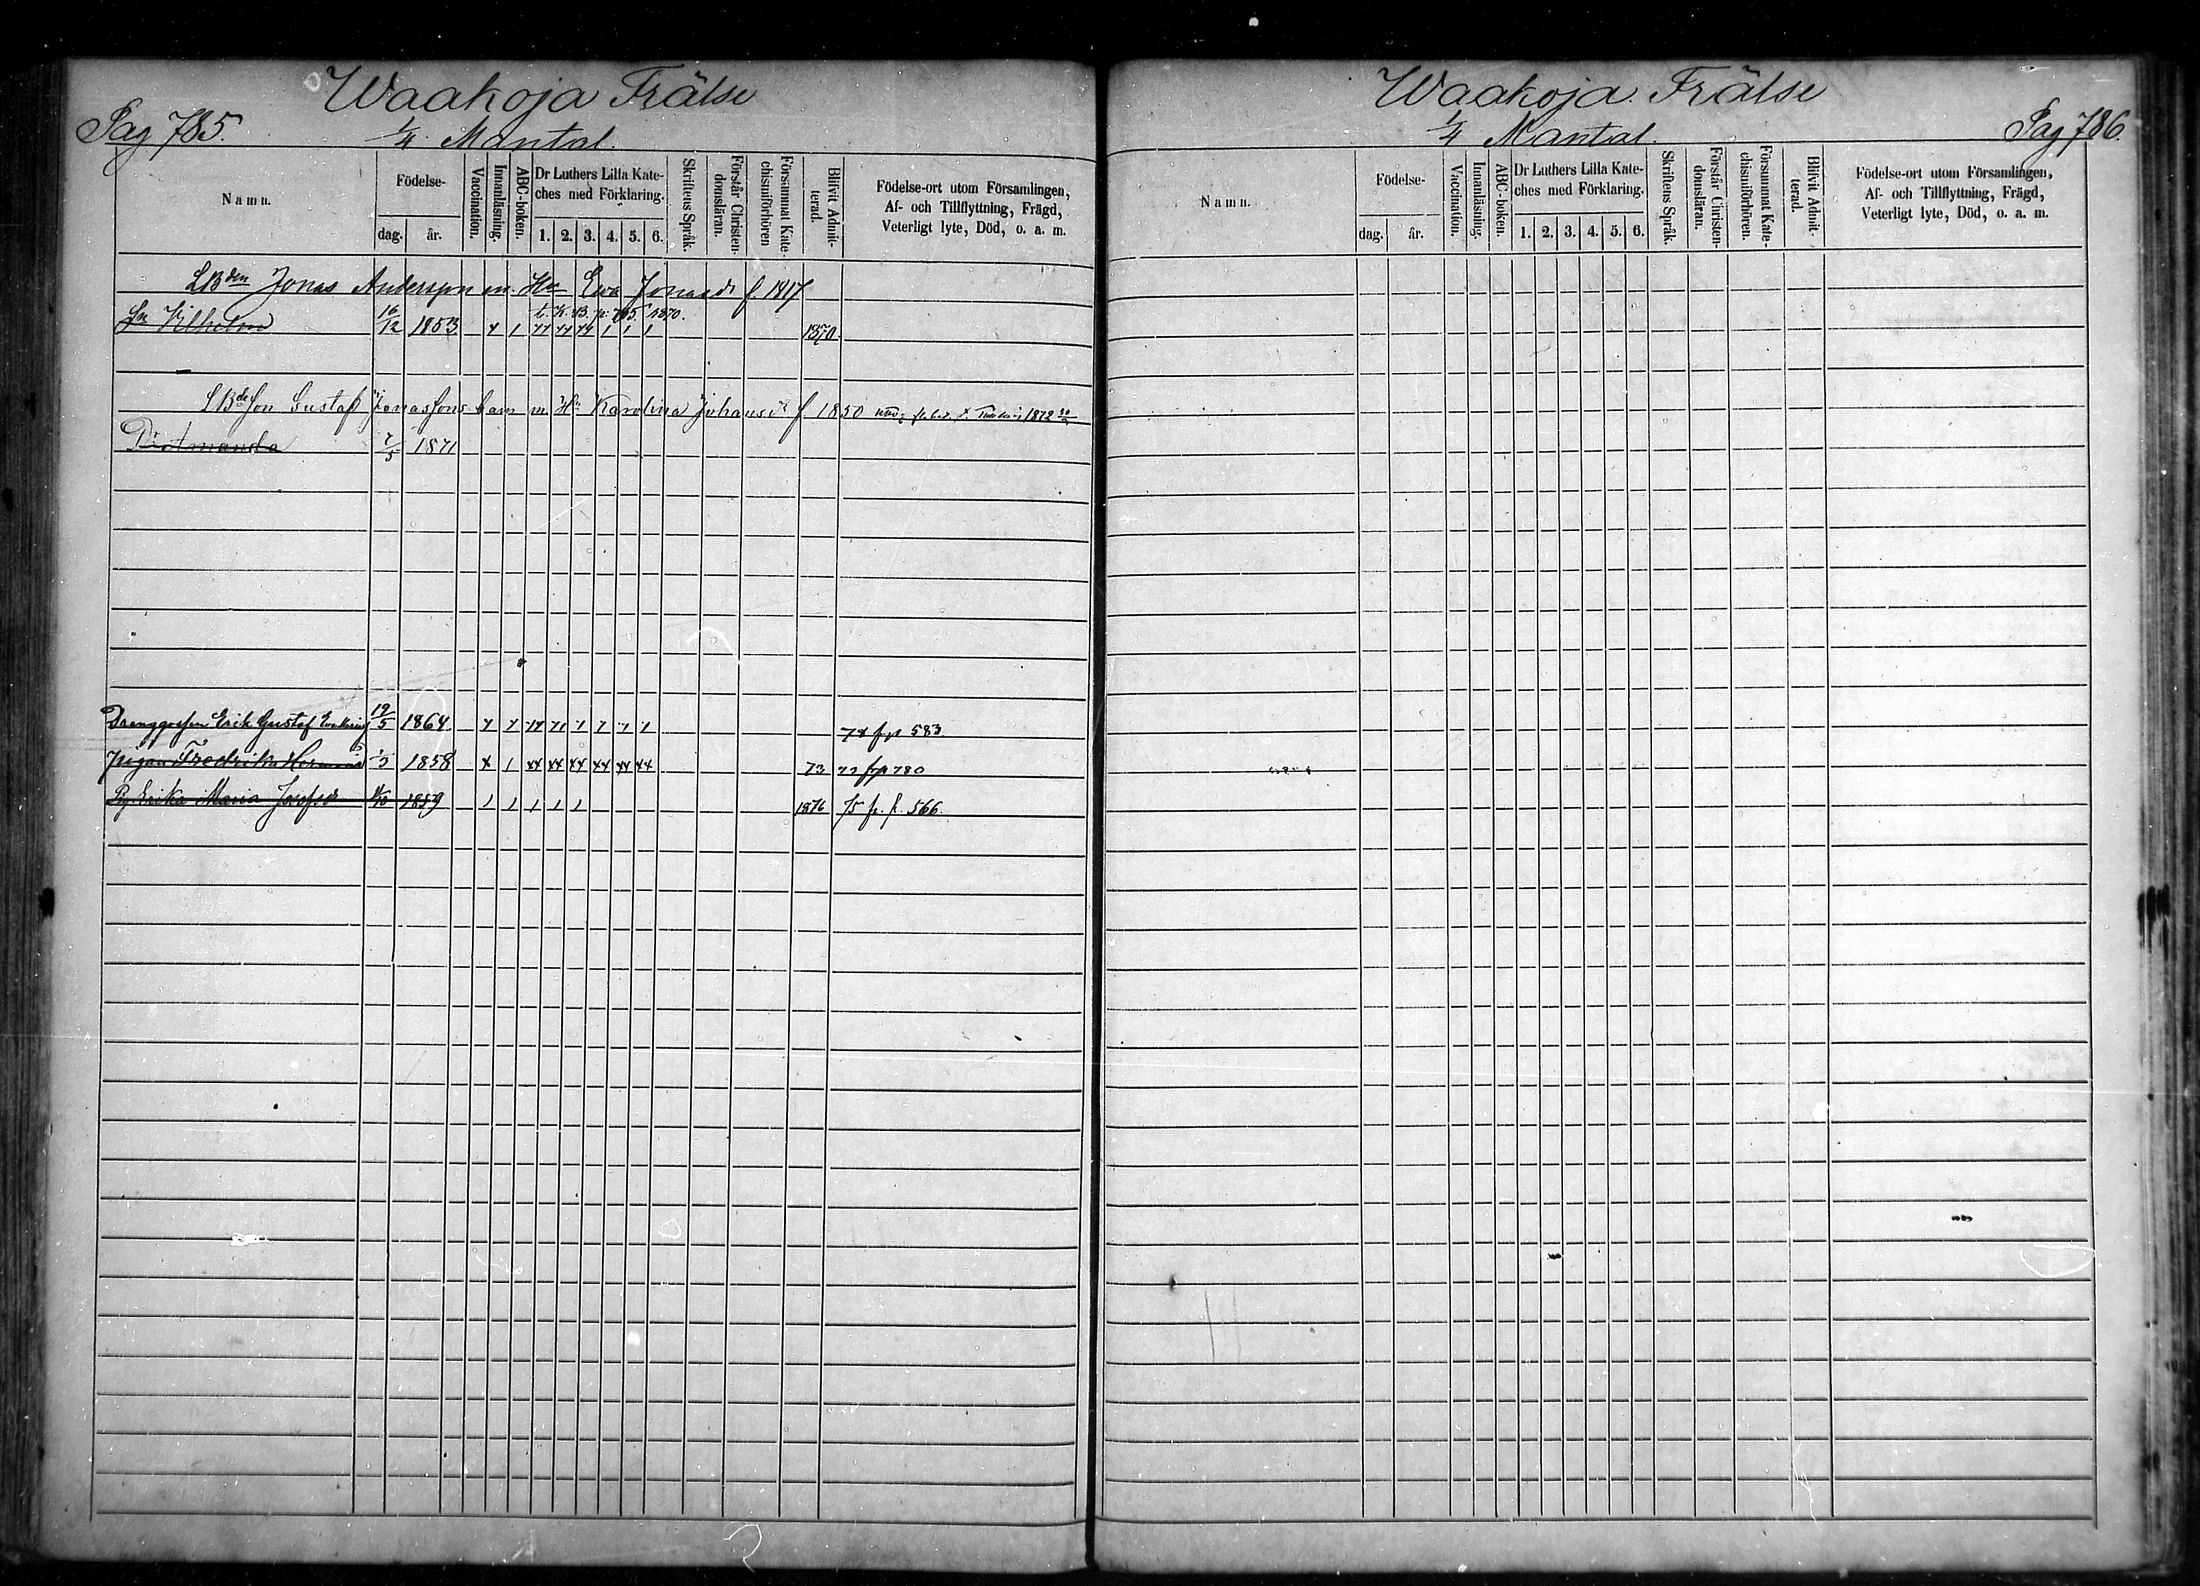 Waakoja Frälse
Pag 785.
1/4 Mantal.
Namn.
Födelse-
dag. år.
Vaccination.
Innanläsning.
ABC-boken.
Dr Luthers Lilla Kate-
ches med Förklaring.
1. 2. 3. 4. 5. 6.
Skriftens Språk.
Förstår Christen-
domsläran.
Försummat Kate-
chismiförhören
Blifvit Admit-
terad.
Födelse-ort utom Församlingen,
Af- och Tillflyttning, Frägd,
Veterligt lyte, Död, o. a. m.
LBden Jonas Andersson m. Hu Ewa Jonasdr f. 1817
Sn Vilhelm 16/12 1853 1870.
LBdeson Gustaf Jonassons barn m. Hu Karolina Johansdr f. 1850
Dr Amanda 7/5 1871
Drenggossen Erik Gustaf 19/5 1864 583
Pigan Fredrika 1858 73 780
Pig Erika Maria Josefsdr 1859 1876 75 fr. p. 566.
Waakoja Frälse
1/4 Mantal.
Pag 786.
Namn.
Födelse-
dag. år.
Vaccination.
Innanläsning.
ABC-boken.
Dr Luthers Lilla Kate-
ches med Förklaring.
1. 2. 3. 4. 5. 6.
Skriftens Språk.
Förstår Christen-
domsläran.
Försummat Kate-
chismiförhören.
Blifvit Admit-
terad.
Födelse-ort utom Församlingen,
Af- och Tillflyttning, Frägd,
Veterligt lyte, Död, o. a. m.